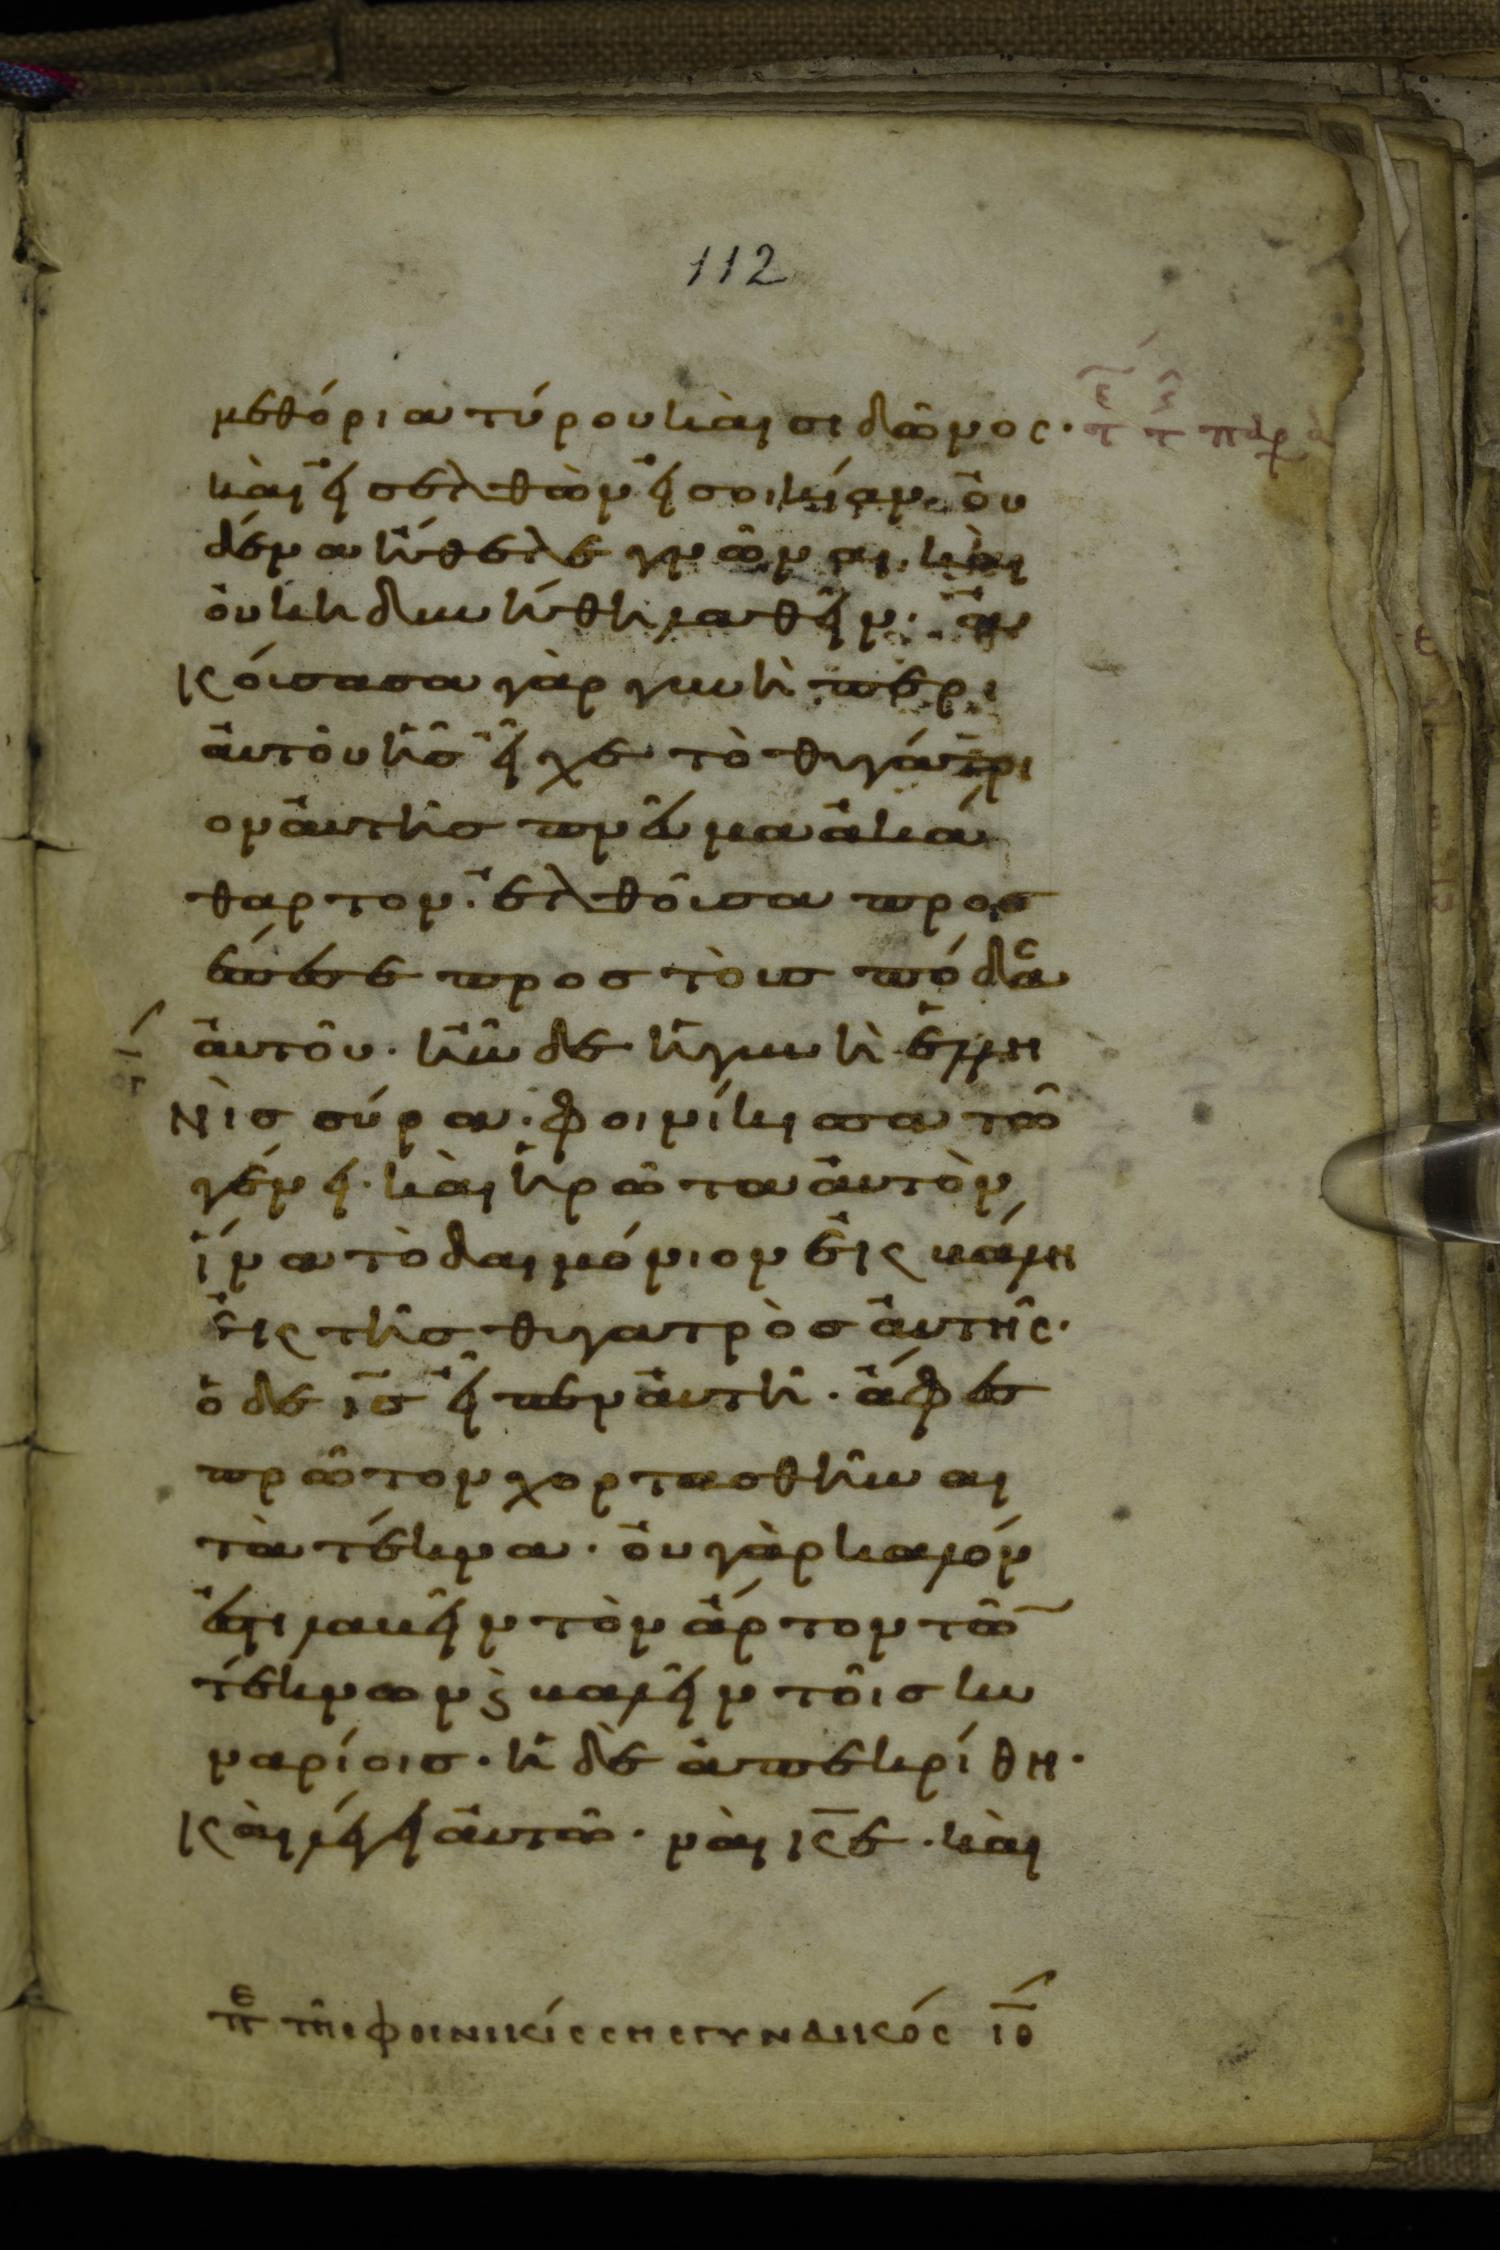 112
μεθόρια τύρου καὶ σιδῶνος·
καὶ εἰσελθὼν εἰς οἰκίαν. οὐ
δένα ἤθελε γνῶναι. καὶ
οὐκ ηδυνήθη λαθεῖν· ἀ
κούσασα γὰρ γυνὴ περι
ἀυτοῦ ἧς εἶχε τὸ θυγάτρι
ον ἀυτῆς πνεῦμα ἀκά
θαρτον· ἐλθοῦσα προσ
έπεσε προς τοὺς πόδας
ἀυτοῦ. ἦν δε ἡ γυνὴ ἑλλη
νὶς σύρα· φοινίκισσα τῶ
γένει. καὶ ἠρώτα ἀυτὸν
ἵνα τὸ δαιμόνιον ἐκβάλη
ἐκ τῆς θυγατρὸς ἀυτῆς·
ὁ δε ις εἶπεν ἀυτῆ· ἄφες
πρῶτον χορτασθῆναι
τὰ τέκνα· οὐ γὰρ καλόν
ἐστι λαβεῖν τὸν ἄρτον τῶ
τέκνων ϗ βαλεῖν τοῖς κυ
ναρίοις· ἡ δὲ ἀπεκρίθη·
καὶ λέγει ἀυτῶ· ναὶ κε· καὶ
πε τῆς φοινικίσσης γυναικός ιθ